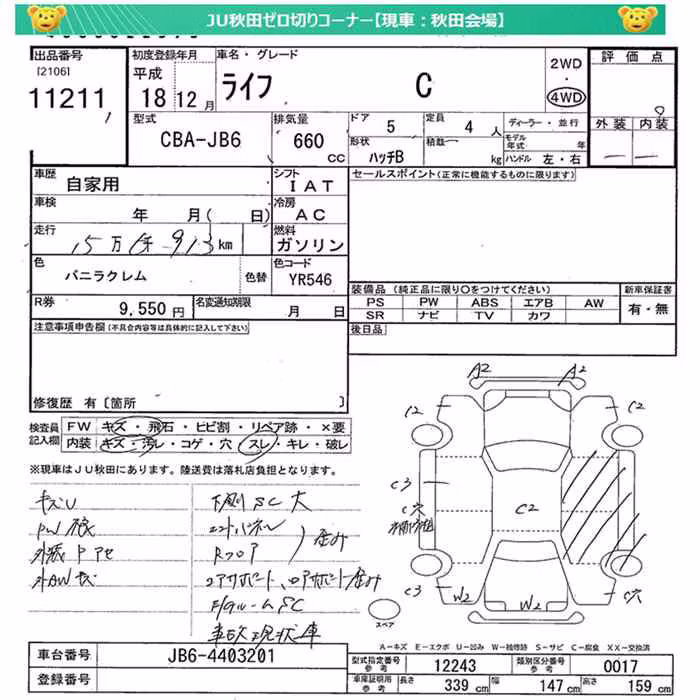 JU秋田ゼロ切りコーナー【現車：秋田会場】
出品番号 [2106] 11211
初度登録年月 平成 18年 12月
車名・グレード ライフ C
2WD ・ 4WD
評価点 0
型式 CBA-JB6
排気量 660 cc
ドア 5
定員 4 人
形状 ハッチB
積載 kg
ディーラー・並行
モデル年式 年
ハンドル 左・右
外装 ― 内装 ―
車歴 自家用
シフト IAT
セールスポイント(正常に機能するものに限ります)
車検 年 月( 日)
冷房 AC
走行 15万 913 km
燃料 ガソリン
色 バニラクレム 色替
色コード YR546
装備品 (純正品に限り○をつけてください)
PS PW ABS エアB AW
SR ナビ TV カワ
新車保証書 有・無
R券 9,550円
名変通知期限 月 日
後日品
注意事項申告欄(不具合内容等は具体的に記入して下さい)
修復歴 有 [箇所 ]
検査員記入欄
FW キズ・飛石・ヒビ割・リペア跡・×要
内装 キズ・汚レ・コゲ・穴・スレ・キレ・破レ
※現車はJU秋田にあります。陸送費は落札店負担となります。
キズU
下廻りSC大
コアサポート、ロアサポート歪み
Rフロア
歪み
現状車
A2 A2
C2 C2
C3 C穴 C2
C3 W2 W2 C穴
スペア
A－キズ E－エクボ U－凹み W－補修跡 S－サビ C－腐食 XX－交換済
車台番号 JB6-4403201
登録番号
型式指定番号 参考 12243
類別区分番号 参考 0017
車庫証明用 参考 長さ 339 cm 幅 147 cm 高さ 159 cm